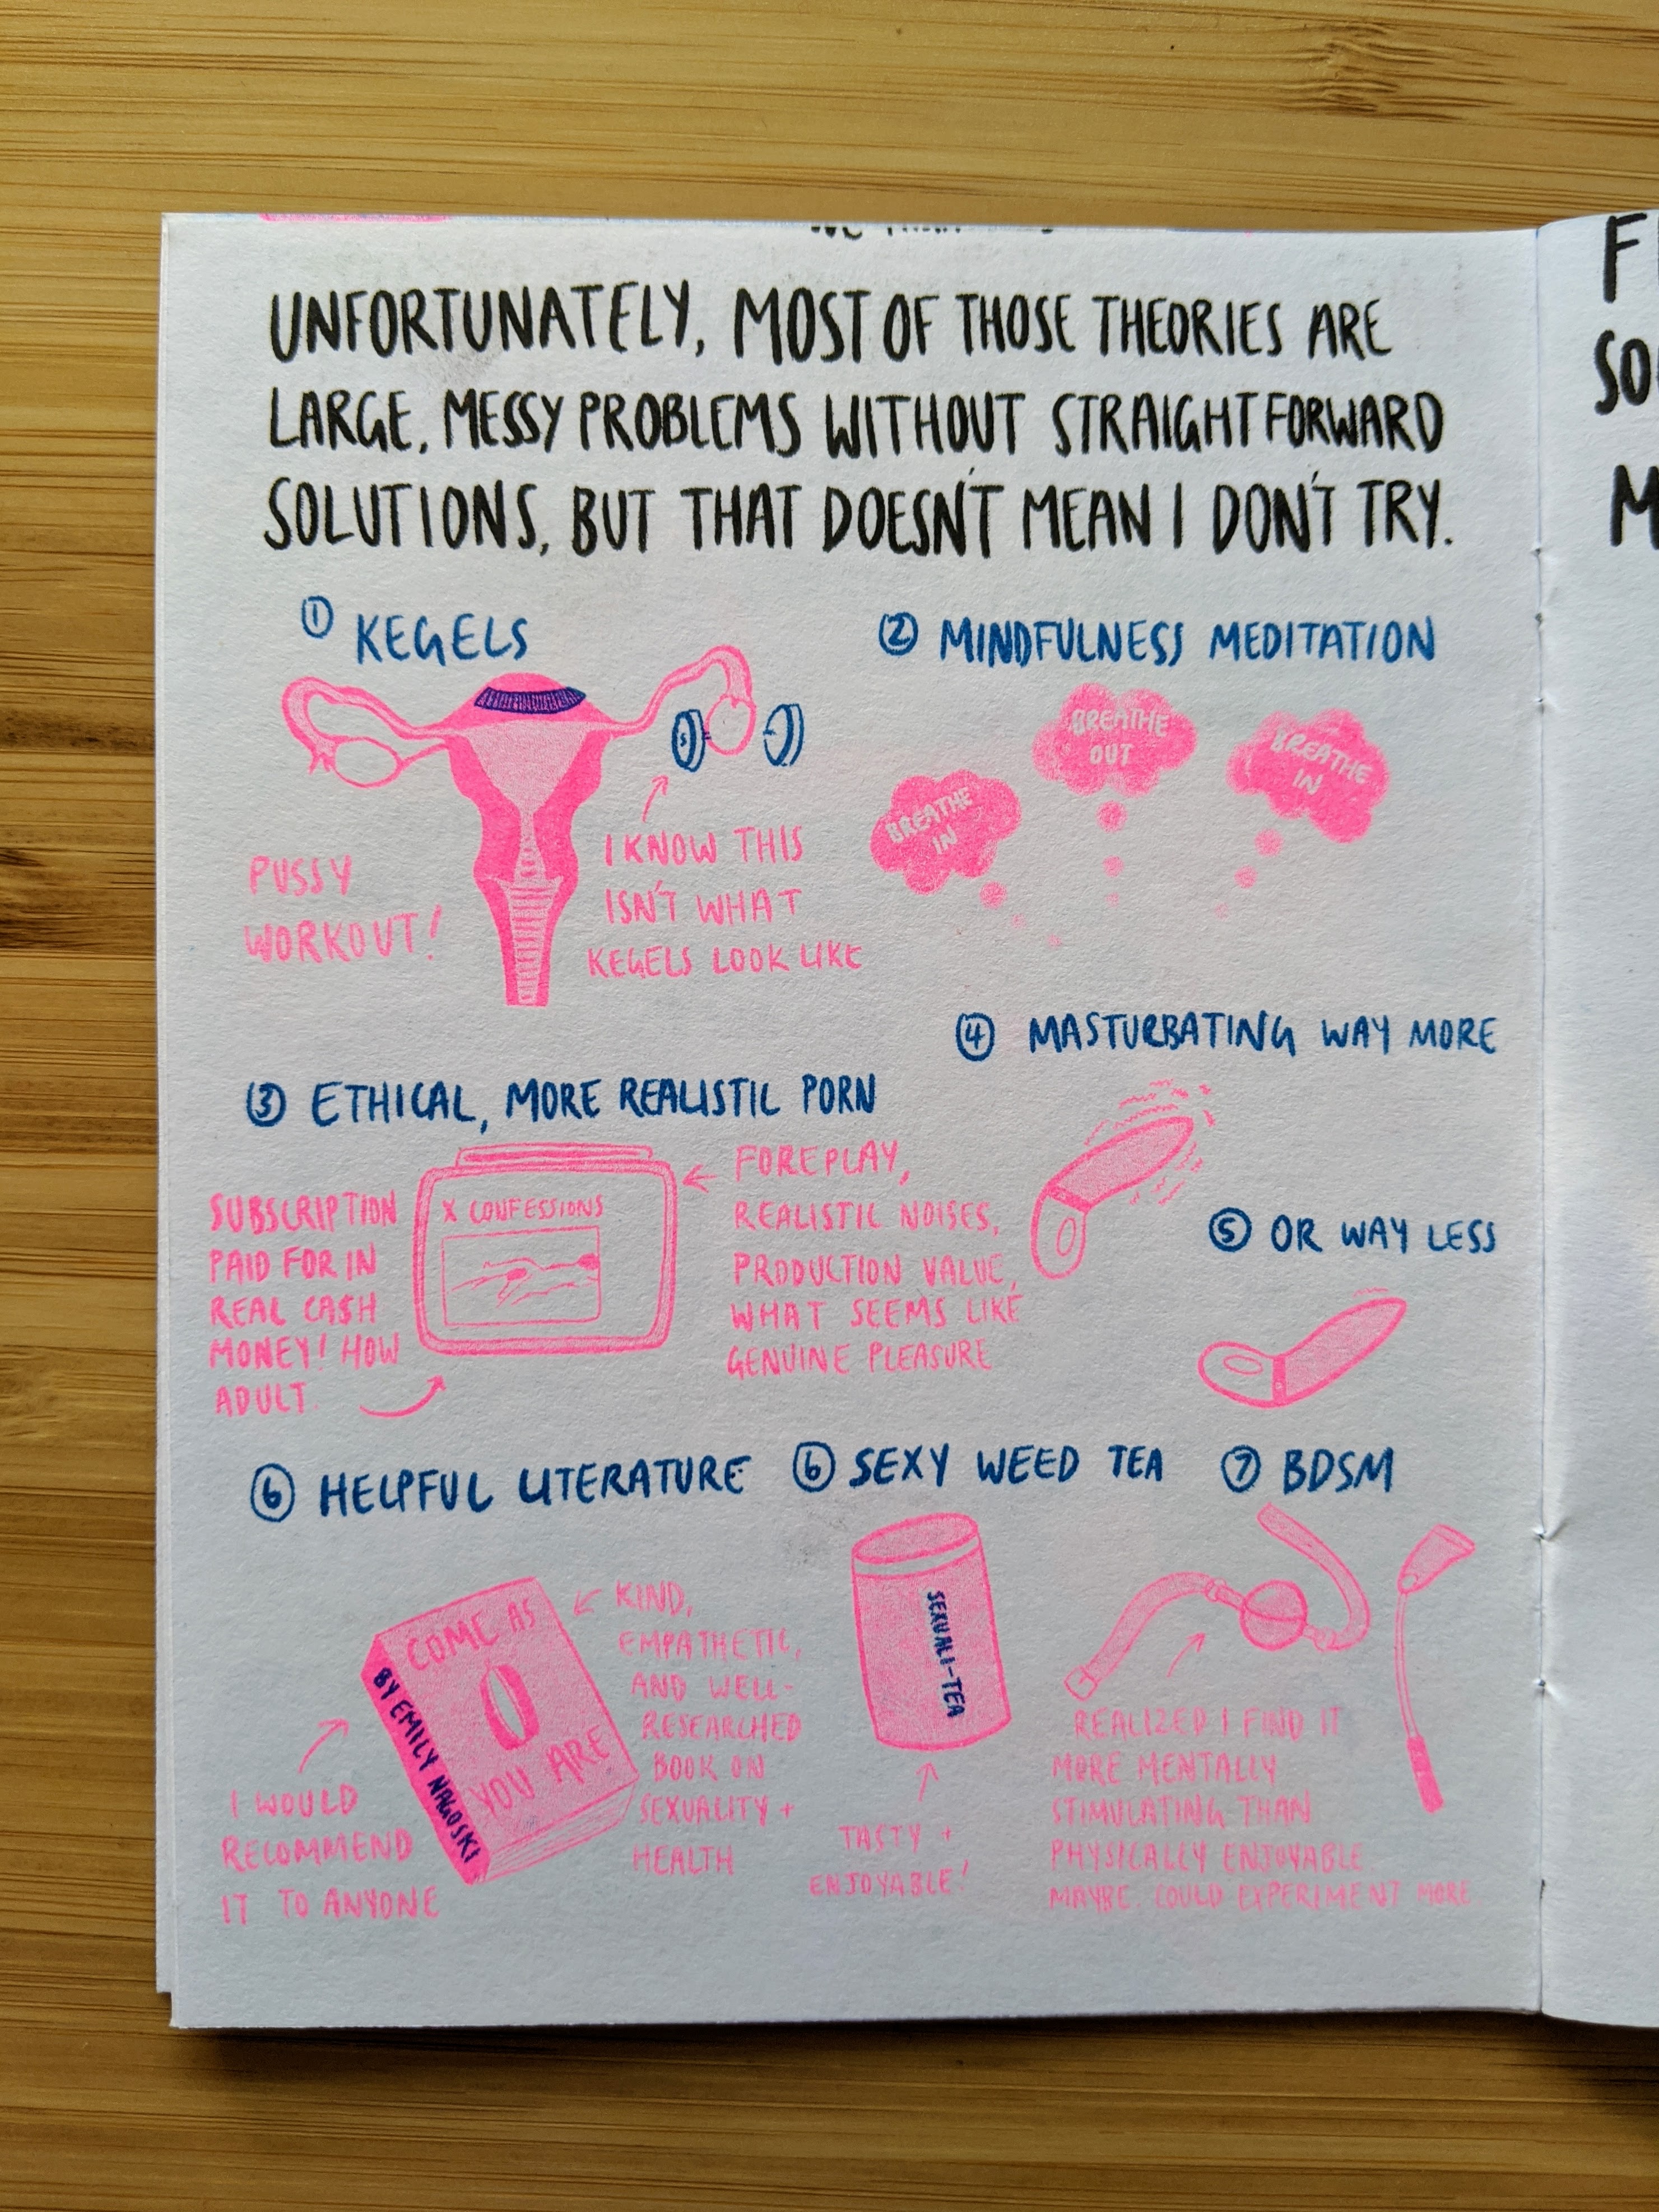 UNFORTUNATELY, MOST OF THOSE THEORIES ARE
LARGE, MESSY PROBLEMS WITHOUT STRAIGHTFORWARD
SOLUTIONS, BUT THAT DOESN'T MEAN I DON'T TRY.
① KEGELS
S
PUSSY
WORKOUT!
I KNOW THIS
ISN'T WHAT
KEGELS LOOK LIKE
② MINDFULNESS MEDITATION
BREATHE
IN
BREATHE
OUT
BREATHE
IN
③ ETHICAL, MORE REALISTIC PORN
SUBSCRIPTION
PAID FOR IN
REAL CA$H
MONEY! HOW
ADULT.
X CONFESSIONS
FOREPLAY,
REALISTIC NOISES,
PRODUCTION VALUE,
WHAT SEEMS LIKE
GENUINE PLEASURE
④ MASTURBATING WAY MORE
⑤ OR WAY LESS
⑥ HELPFUL LITERATURE
COME AS
YOU ARE
BY EMILY NAGOSKI
I WOULD
RECOMMEND
IT TO ANYONE
KIND,
EMPATHETIC,
AND WELL-
RESEARCHED
BOOK ON
SEXUALITY +
HEALTH
⑥ SEXY WEED TEA
SEXUALI-TEA
TASTY +
ENJOYABLE!
⑦ BDSM
REALIZED I FIND IT
MORE MENTALLY
STIMULATING THAN
PHYSICALLY ENJOYABLE.
MAYBE COULD EXPERIMENT MORE
F
SO
M